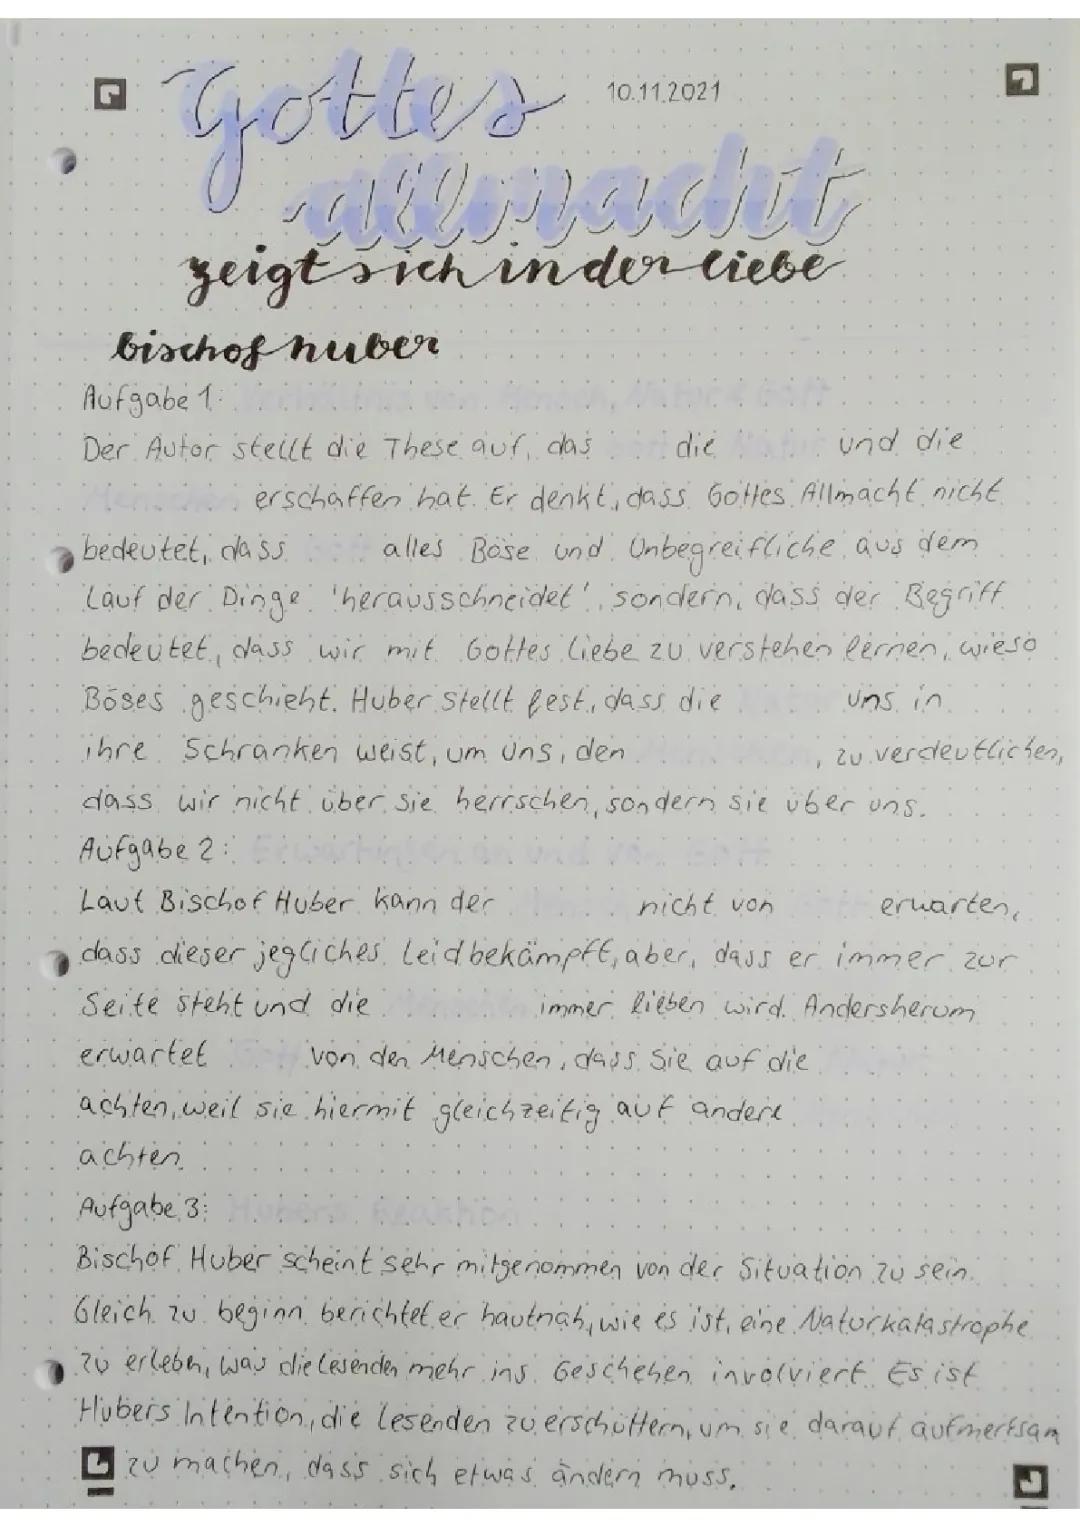 Gottes 10.11.2021
allmacht
zeigt sich in der liebe
bischof huber
Aufgabe 1: Verhältnis von Mensch, Natur & Gott
Der Autor stellt die These auf, das Gott die Natur und die
Menschen erschaffen hat. Er denkt, dass Gottes Allmacht nicht
bedeutet, dass Gott alles Böse und Unbegreifliche aus dem
Lauf der Dinge 'herausschneidet', sondern, dass der Begriff
bedeutet, dass wir mit Gottes Liebe zu verstehen lernen, wieso
Böses geschieht. Huber stellt fest, dass die Natur uns in
ihre Schranken weist, um uns, den Menschen, zu verdeutlichen,
dass wir nicht über sie herrschen, sondern sie über uns.
Aufgabe 2: Erwartungen an und von Gott
Laut Bischof Huber kann der Mensch nicht von Gott erwarten,
dass dieser jegliches Leid bekämpft, aber, dass er immer zur
Seite steht und die Menschen immer lieben wird. Andersherum
erwartet Gott von den Menschen, dass Sie auf die
achten, weil sie hiermit gleichzeitig auf andere
achten.
Aufgabe 3: Hubers Reaktion
Bischof Huber scheint sehr mitgenommen von der Situation zu sein.
Gleich zu beginn berichtet er hautnah, wie es ist, eine Naturkatastrophe
zu erleben, was die Lesenden mehr ins Geschehen involviert. Es ist
Hubers Intention, die Lesenden zu erschüttern, um sie darauf aufmerksam
zu machen, dass sich etwas ändern muss.